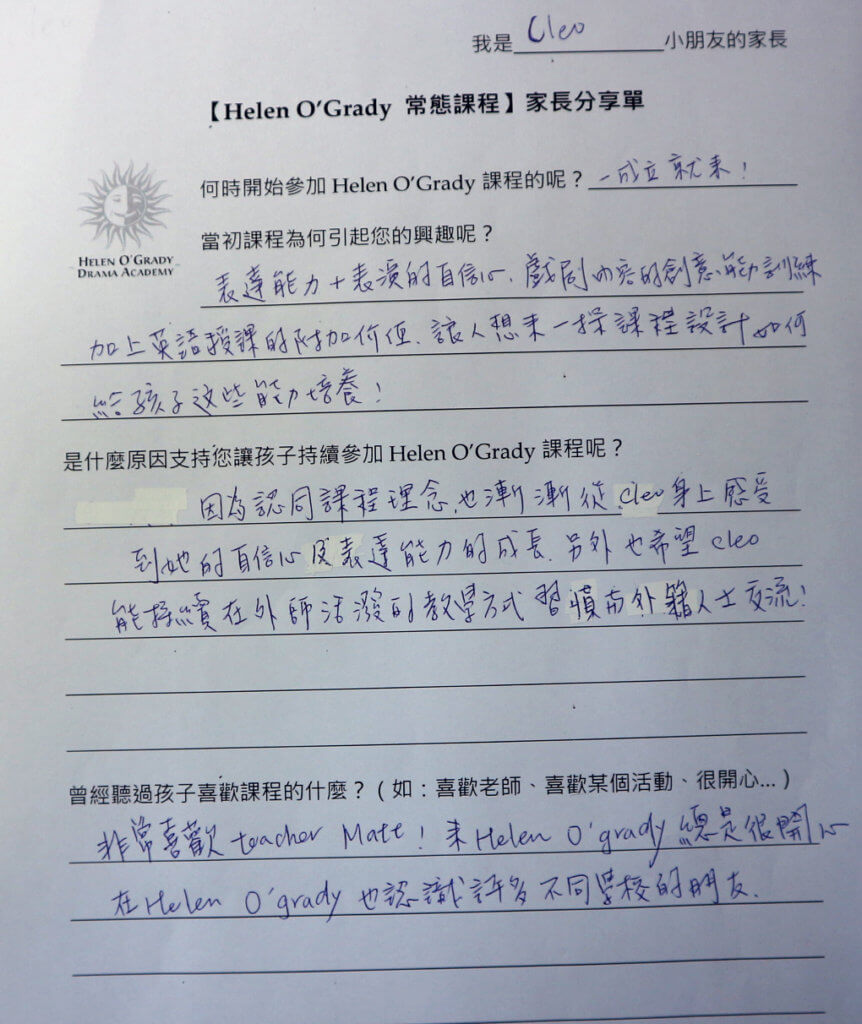 我是 Cleo 小朋友的家長
【Helen O'Grady 常態課程】家長分享單
何時開始參加 Helen O'Grady 課程的呢？一成立就來！
當初課程為何引起您的興趣呢？
HELEN O'GRADY
DRAMA ACADEMY
表達能力＋表演的自信心、戲剧內容的創意能訓練
加上英語授課的附加价值、讓人想來一探課程設計如何
給孩子这些能力培養！
是什麼原因支持您讓孩子持續參加 Helen O'Grady 課程呢？
因為認同課程理念,也漸漸從 cleo 身上感受
到她的自信心及表達能力的成長、另外也希望 cleo
能持續在外師活潑的教學方式習慣而外籍人士交流！
曾經聽過孩子喜歡課程的什麼？（如：喜歡老師、喜歡某個活動、很開心...）
非常喜歡 teacher Matt！來 Helen O'grady 總是很開心
在 Helen O'grady 也認識許多不同學校的朋友.